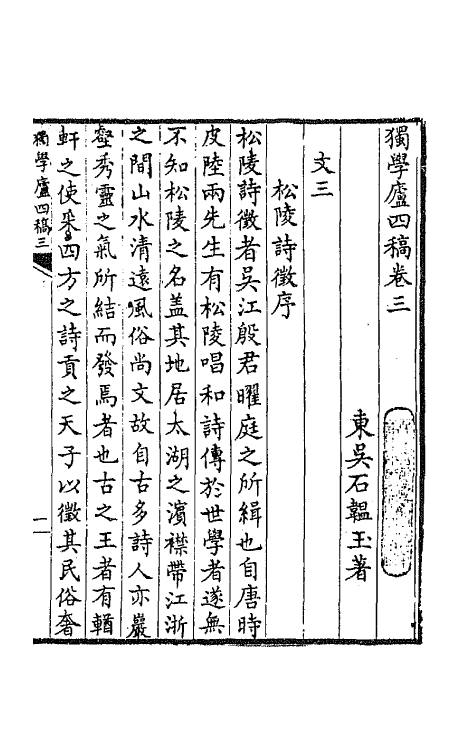 獨學廬四稿卷三
東吳石韞玉著
文三
松陵詩徵序
松陵詩徵者吳江殷君曜庭之所緝也自唐時
皮陸兩先生有松陵唱和詩傳於世學者遂無
不知松陵之名盖其地居太湖之濱襟帶江浙
之間山水清遠風俗尚文故自古多詩人亦巖
壑秀靈之氣所結而發焉者也古之王者有輶
軒之使采四方之詩貢之天子以徵其民俗奢
獨學廬四稿三
一